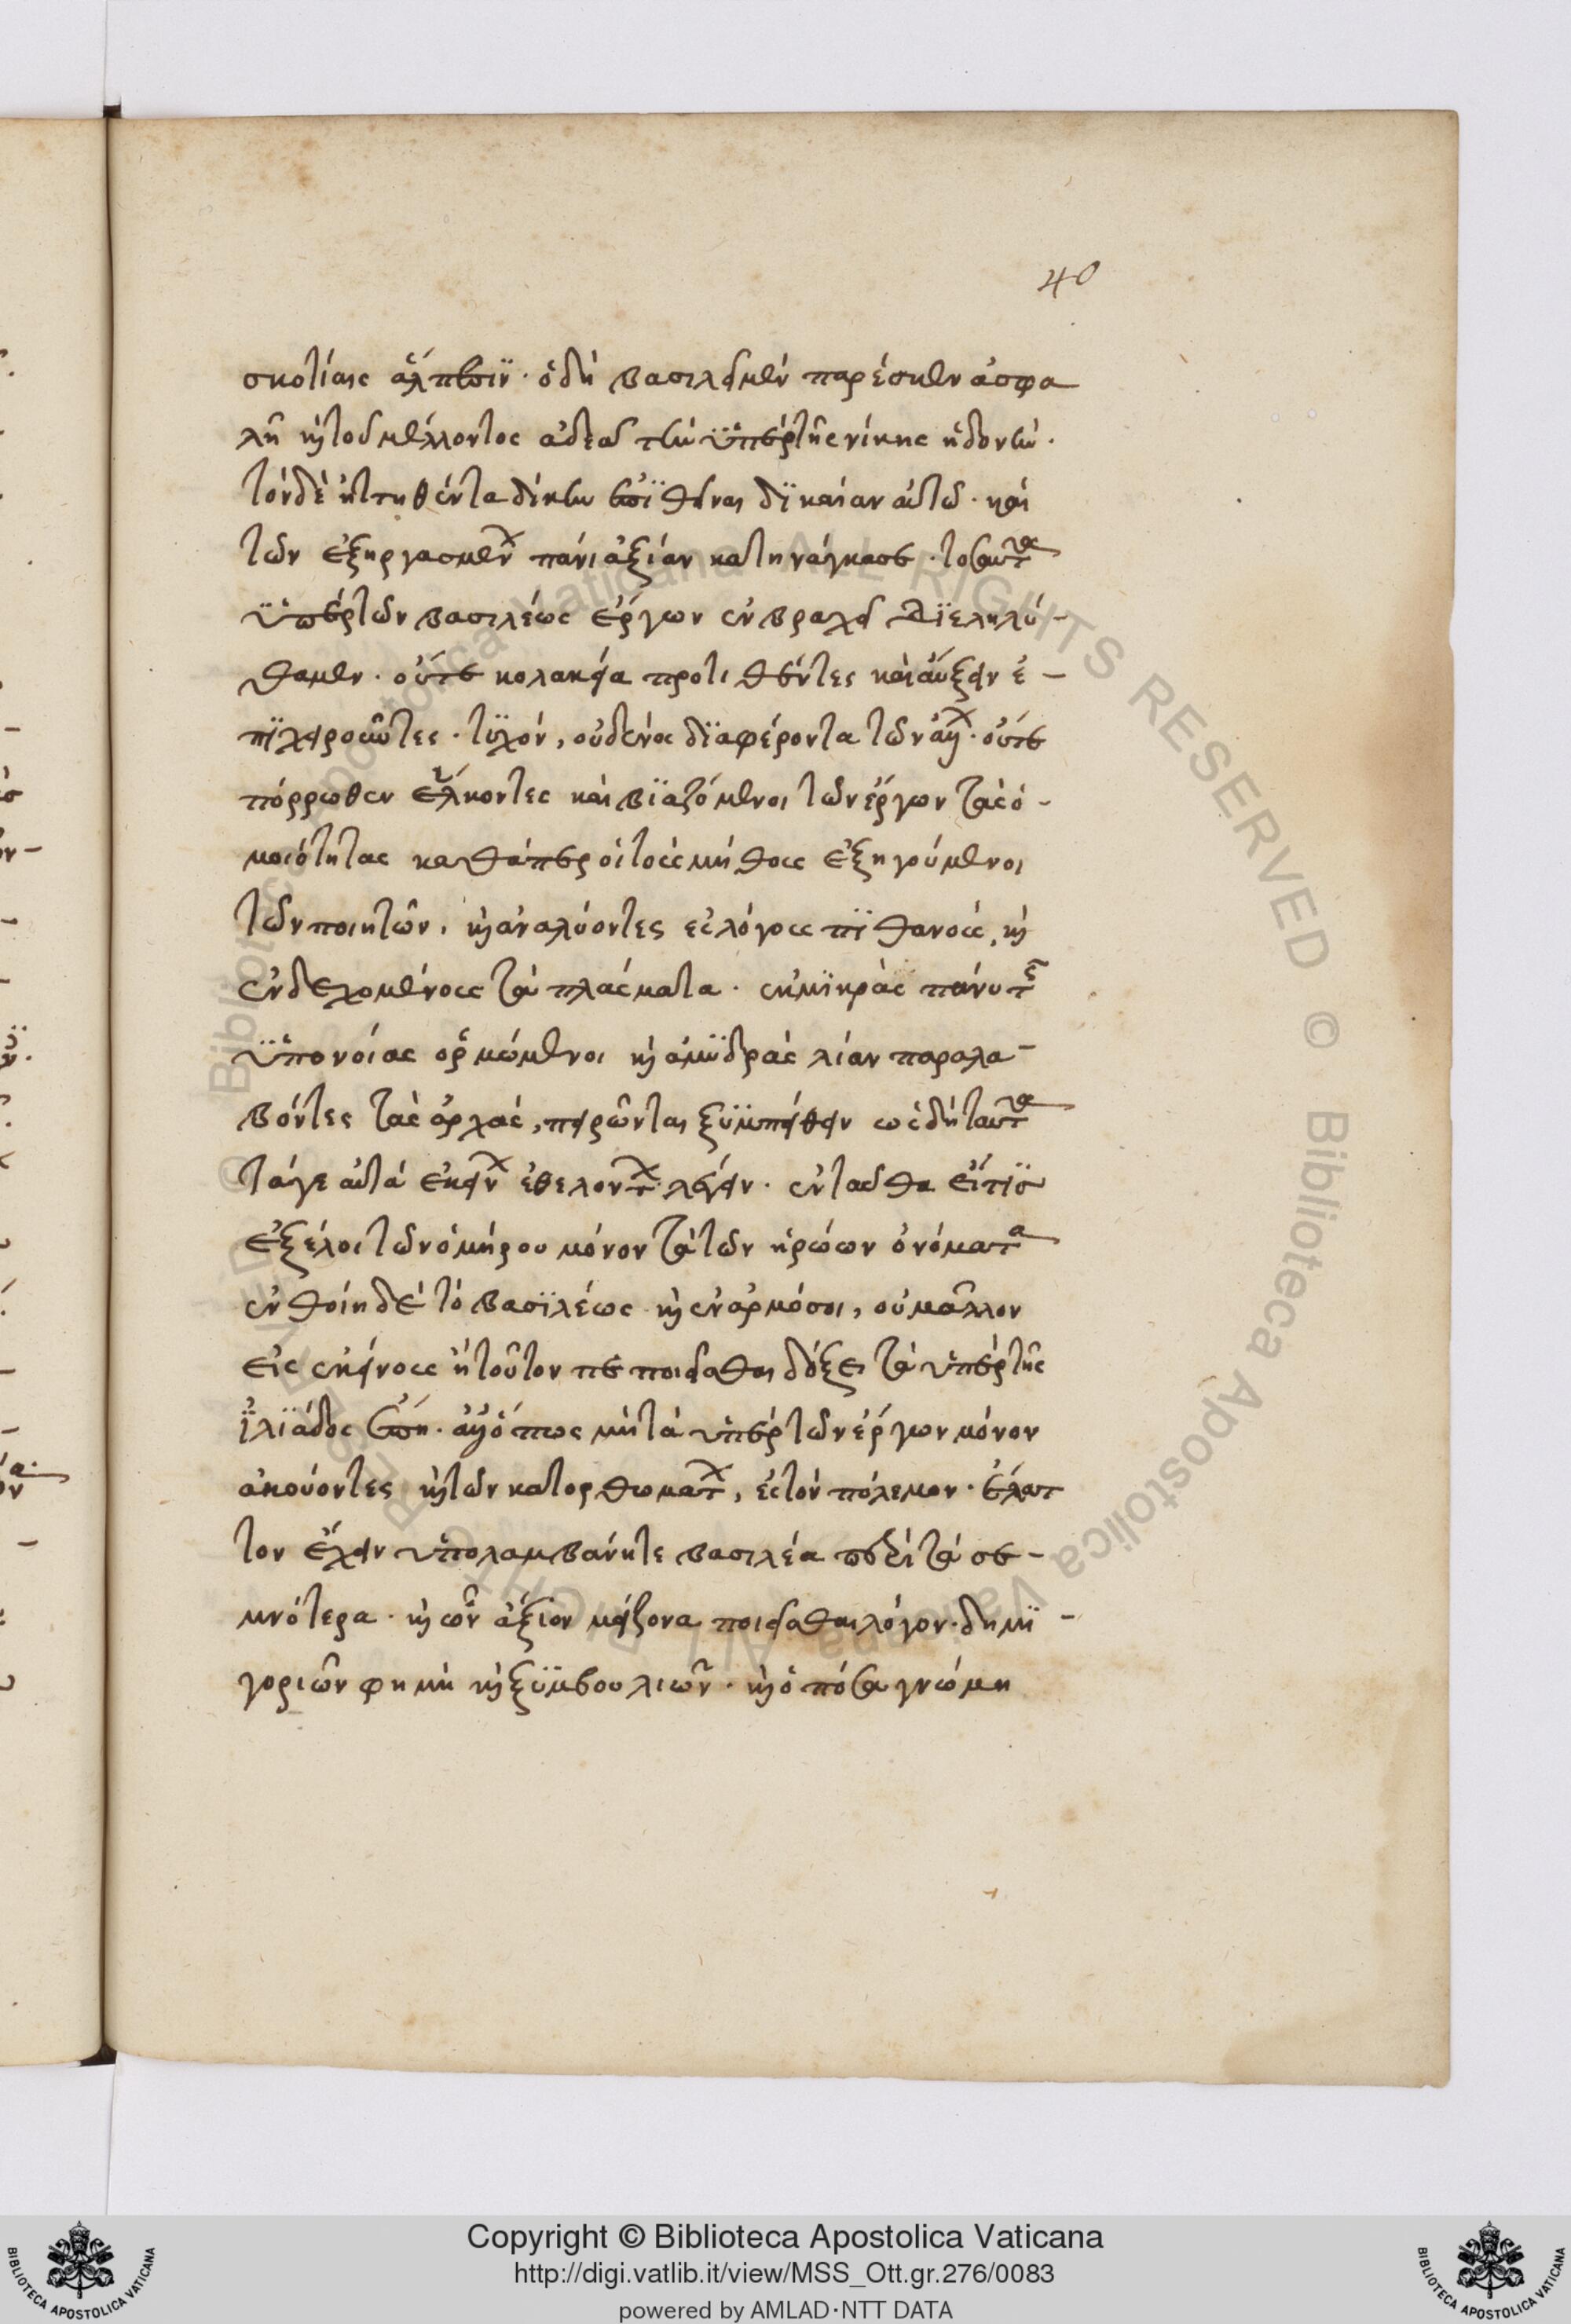 40
σκοτίαις ἄλπεσιν· ὁ δὴ βασιλεῖ μὲν παρέσχεν ἀσφα
λῆ καὶ τοῦ μέλλοντος ἀδεᾶ τὴν ὑπὲρ τῆς νίκης ἡδονήν.
τὸν δὲ ἡττηθέντα δίκην ἐπιθεῖναι δικαίαν αὑτῷ· καὶ
τῶν ἐξηργασμένων πάνυ ἀξίαν κατηνάγκασε· τοσαῦτα
ὑπὲρ τῶν βασιλέως ἔργων ἐν βραχεῖ διεληλύ-
θαμεν· οὔτε κολακεία προτιθέντες καὶ αὔξειν ἐ-
πιχειροῦντες· τυχόν, οὐδενὸς διαφέροντα τῶν ἄλλων· οὔτε
πόρρωθεν ἕλκοντες καὶ βιαζόμενοι τῶν ἔργων τὰς ὁ-
μοιότητας καθάπερ οἱ τοὺς μύθους ἐξηγούμενοι
τῶν ποιητῶν, καὶ ἀναλύοντες εἰς λόγους πιθανοὺς, καὶ
ἐνδεχομένους τὰ πλάσματα· ἐκ μικρᾶς πάνυ τῆς
ὑπονοίας ὁρμώμενοι καὶ ἀμυδρὰς λίαν παραλα-
βόντες τὰς ἀρχὰς, πειρῶνται ξυμπείθειν ὡς δὴ ταῦτα
τά γε αὐτὰ ἐκείνων ἐθελόντων λέγειν· ἐνταῦθα εἴ τις
ἐξέλοι τῶν ὁμήρου μόνον τὰ τῶν ἡρώων ὀνόματα
ἐνθείη δὲ τὸ βασιλέως καὶ ἐναρμόσοι, οὐ μᾶλλον
εἰς ἐκείνους ἢ τοῦτον πεποιῆσθαι δόξει τὰ ὑπὲρ τῆς
ἰλιάδος ἔπη· ἀλλ' ὅπως μὴ τὰ ὑπὲρ τῶν ἔργων μόνον
ἀκούοντες καὶ τῶν κατορθωμάτων, ἐς τὸν πόλεμον· ἔλατ
τον ἔχειν ὑπολαμβάνητε βασιλέα περὶ τὰ σε-
μνότερα· καὶ ὧν ἄξιον μείζονα ποιεῖσθαι λόγον· δημη-
γοριῶν φημὶ καὶ ξυμβουλιῶν· καὶ ὁπόσα γνώμη
Copyright © Biblioteca Apostolica Vaticana
http://digi.vatlib.it/view/MSS_Ott.gr.276/0083
powered by AMLAD·NTT DATA